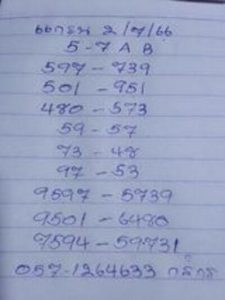 2/7/66
5-7 A B
597-739
501-951
480-573
59-57
73-48
97-53
9597-5739
9501-6480
9594-59731
057-1264633